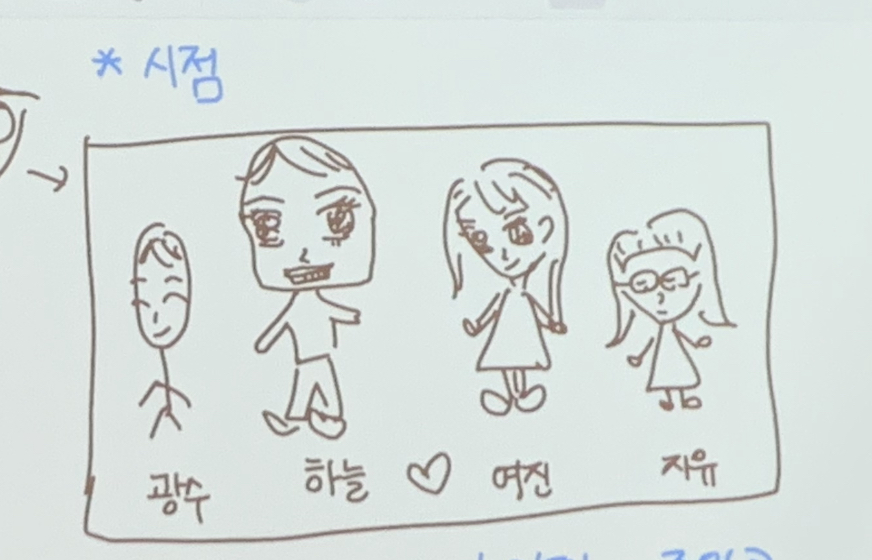 * 시점
광수 하늘 ♡ 여진 자유